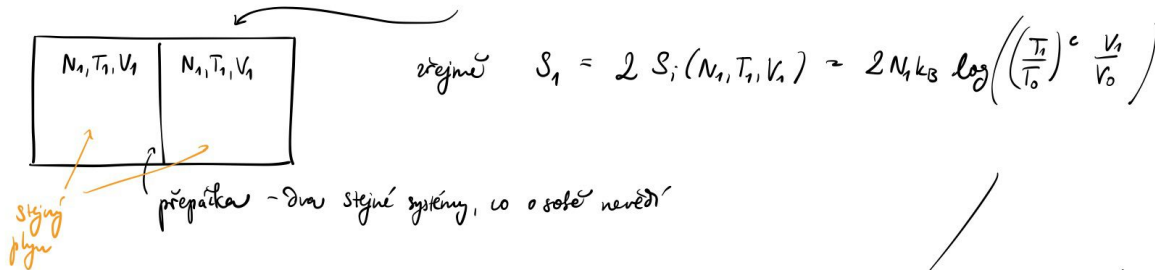 N₁, T₁, V₁ N₁, T₁, V₁
zřejmě S₁ = 2 Sᵢ(N₁, T₁, V₁) = 2N₁k_B log((T₁/T₀)^c V₁/V₀)
stejný
plyn
přepážka - dva stejné systémy, co o sobě nevědí